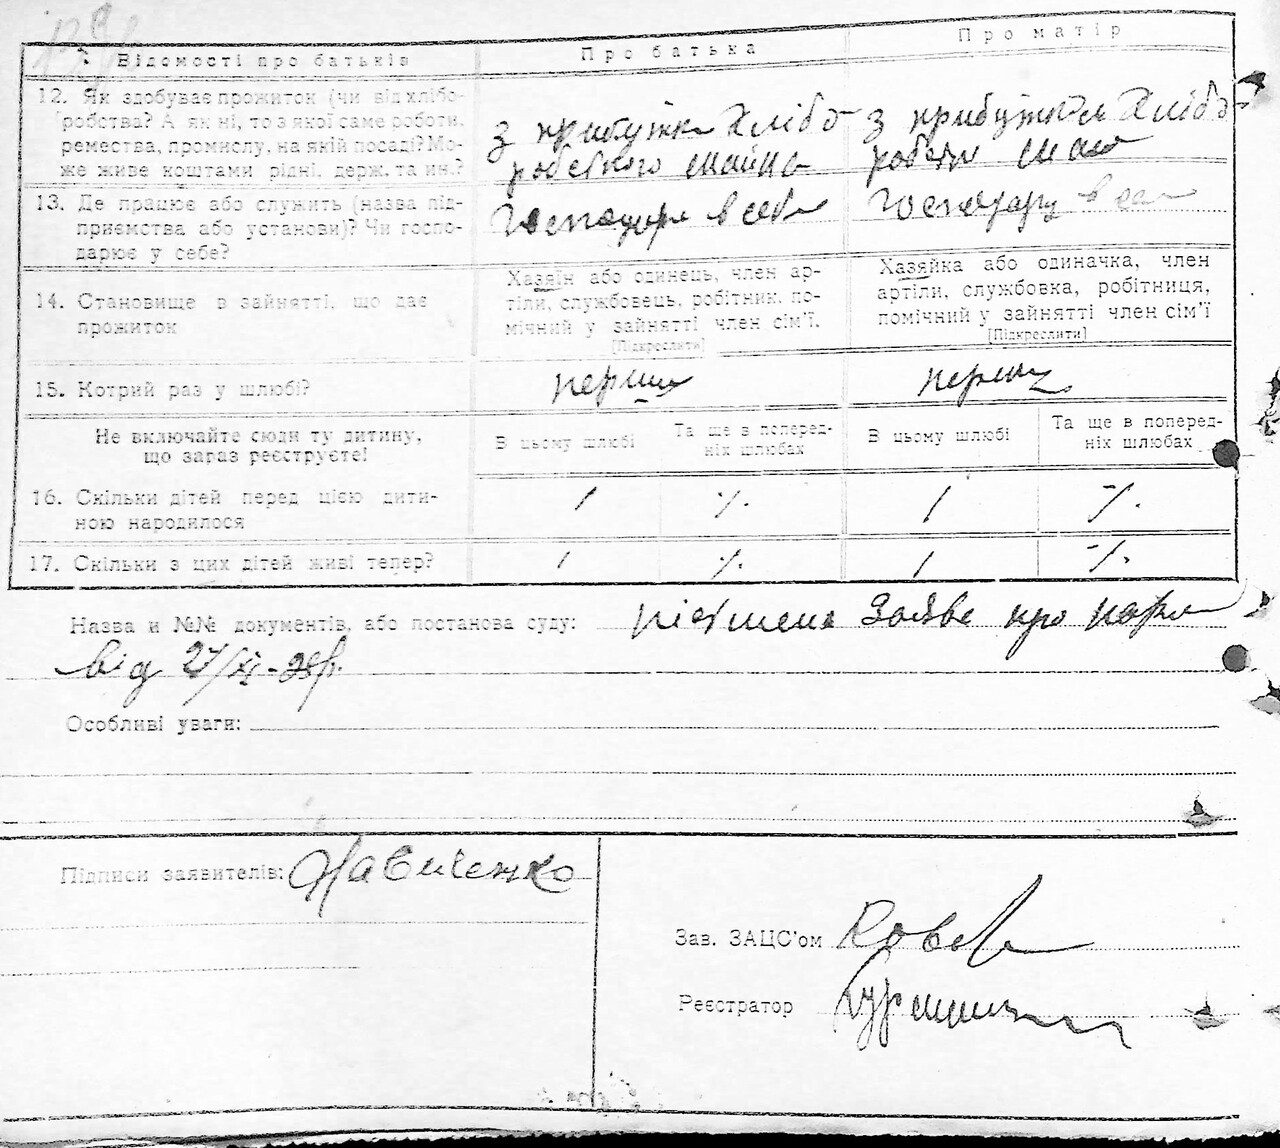 Відомості про батьків
Про батька
Про матір
12. Як здобуває прожиток (чи від хлібо-
робства? А як ні, то з якої саме роботи,
ремества, промислу, на якій посаді? Мо-
же живе коштами рідні, держ. та ин.?
з прибутків Хлібо
робського майна
з прибутків Хлібо
13. Де працює або служить (назва під-
приємства або установи)? Чи госпо-
дарює у себе?
Господарює в себе
Господарює в себе
14. Становище в зайнятті, що дає
прожиток
Хазяїн або одинець, член ар-
тіли, службовець, робітник, по-
мічний у зайнятті член сім'ї.
[Підкреслити]
Хазяйка або одиначка, член
артіли, службовка, робітниця,
помічний у зайнятті член сім'ї
[Підкреслити]
15. Котрий раз у шлюбі?
перший
перший
Не включайте сюди ту дитину,
що зараз реєструєте!
В цьому шлюбі
Та ще в поперед-
ніх шлюбах
В цьому шлюбі
Та ще в поперед-
ніх шлюбах
16. Скільки дітей перед цією дити-
ною народилося
1
-/.
1
-/.
17. Скільки з цих дітей живі тепер?
1
-/.
1
-/.
Назва и №№ документів, або постанова суду: заяве про
від 27/XI-28р.
Особливі уваги:
Підписи заявителів:
Зав. ЗАЦС'ом
Реєстратор